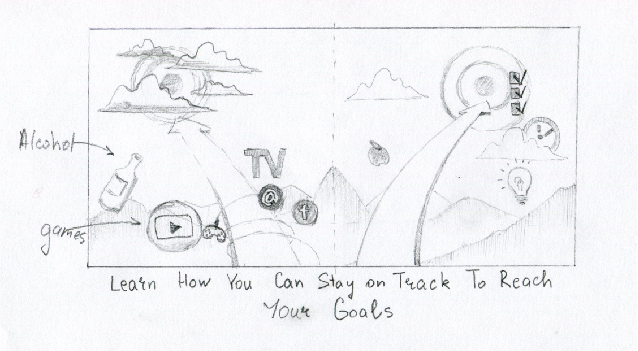 TV
Alcohol
@
t
games
Learn How You Can Stay on Track To Reach
Your Goals